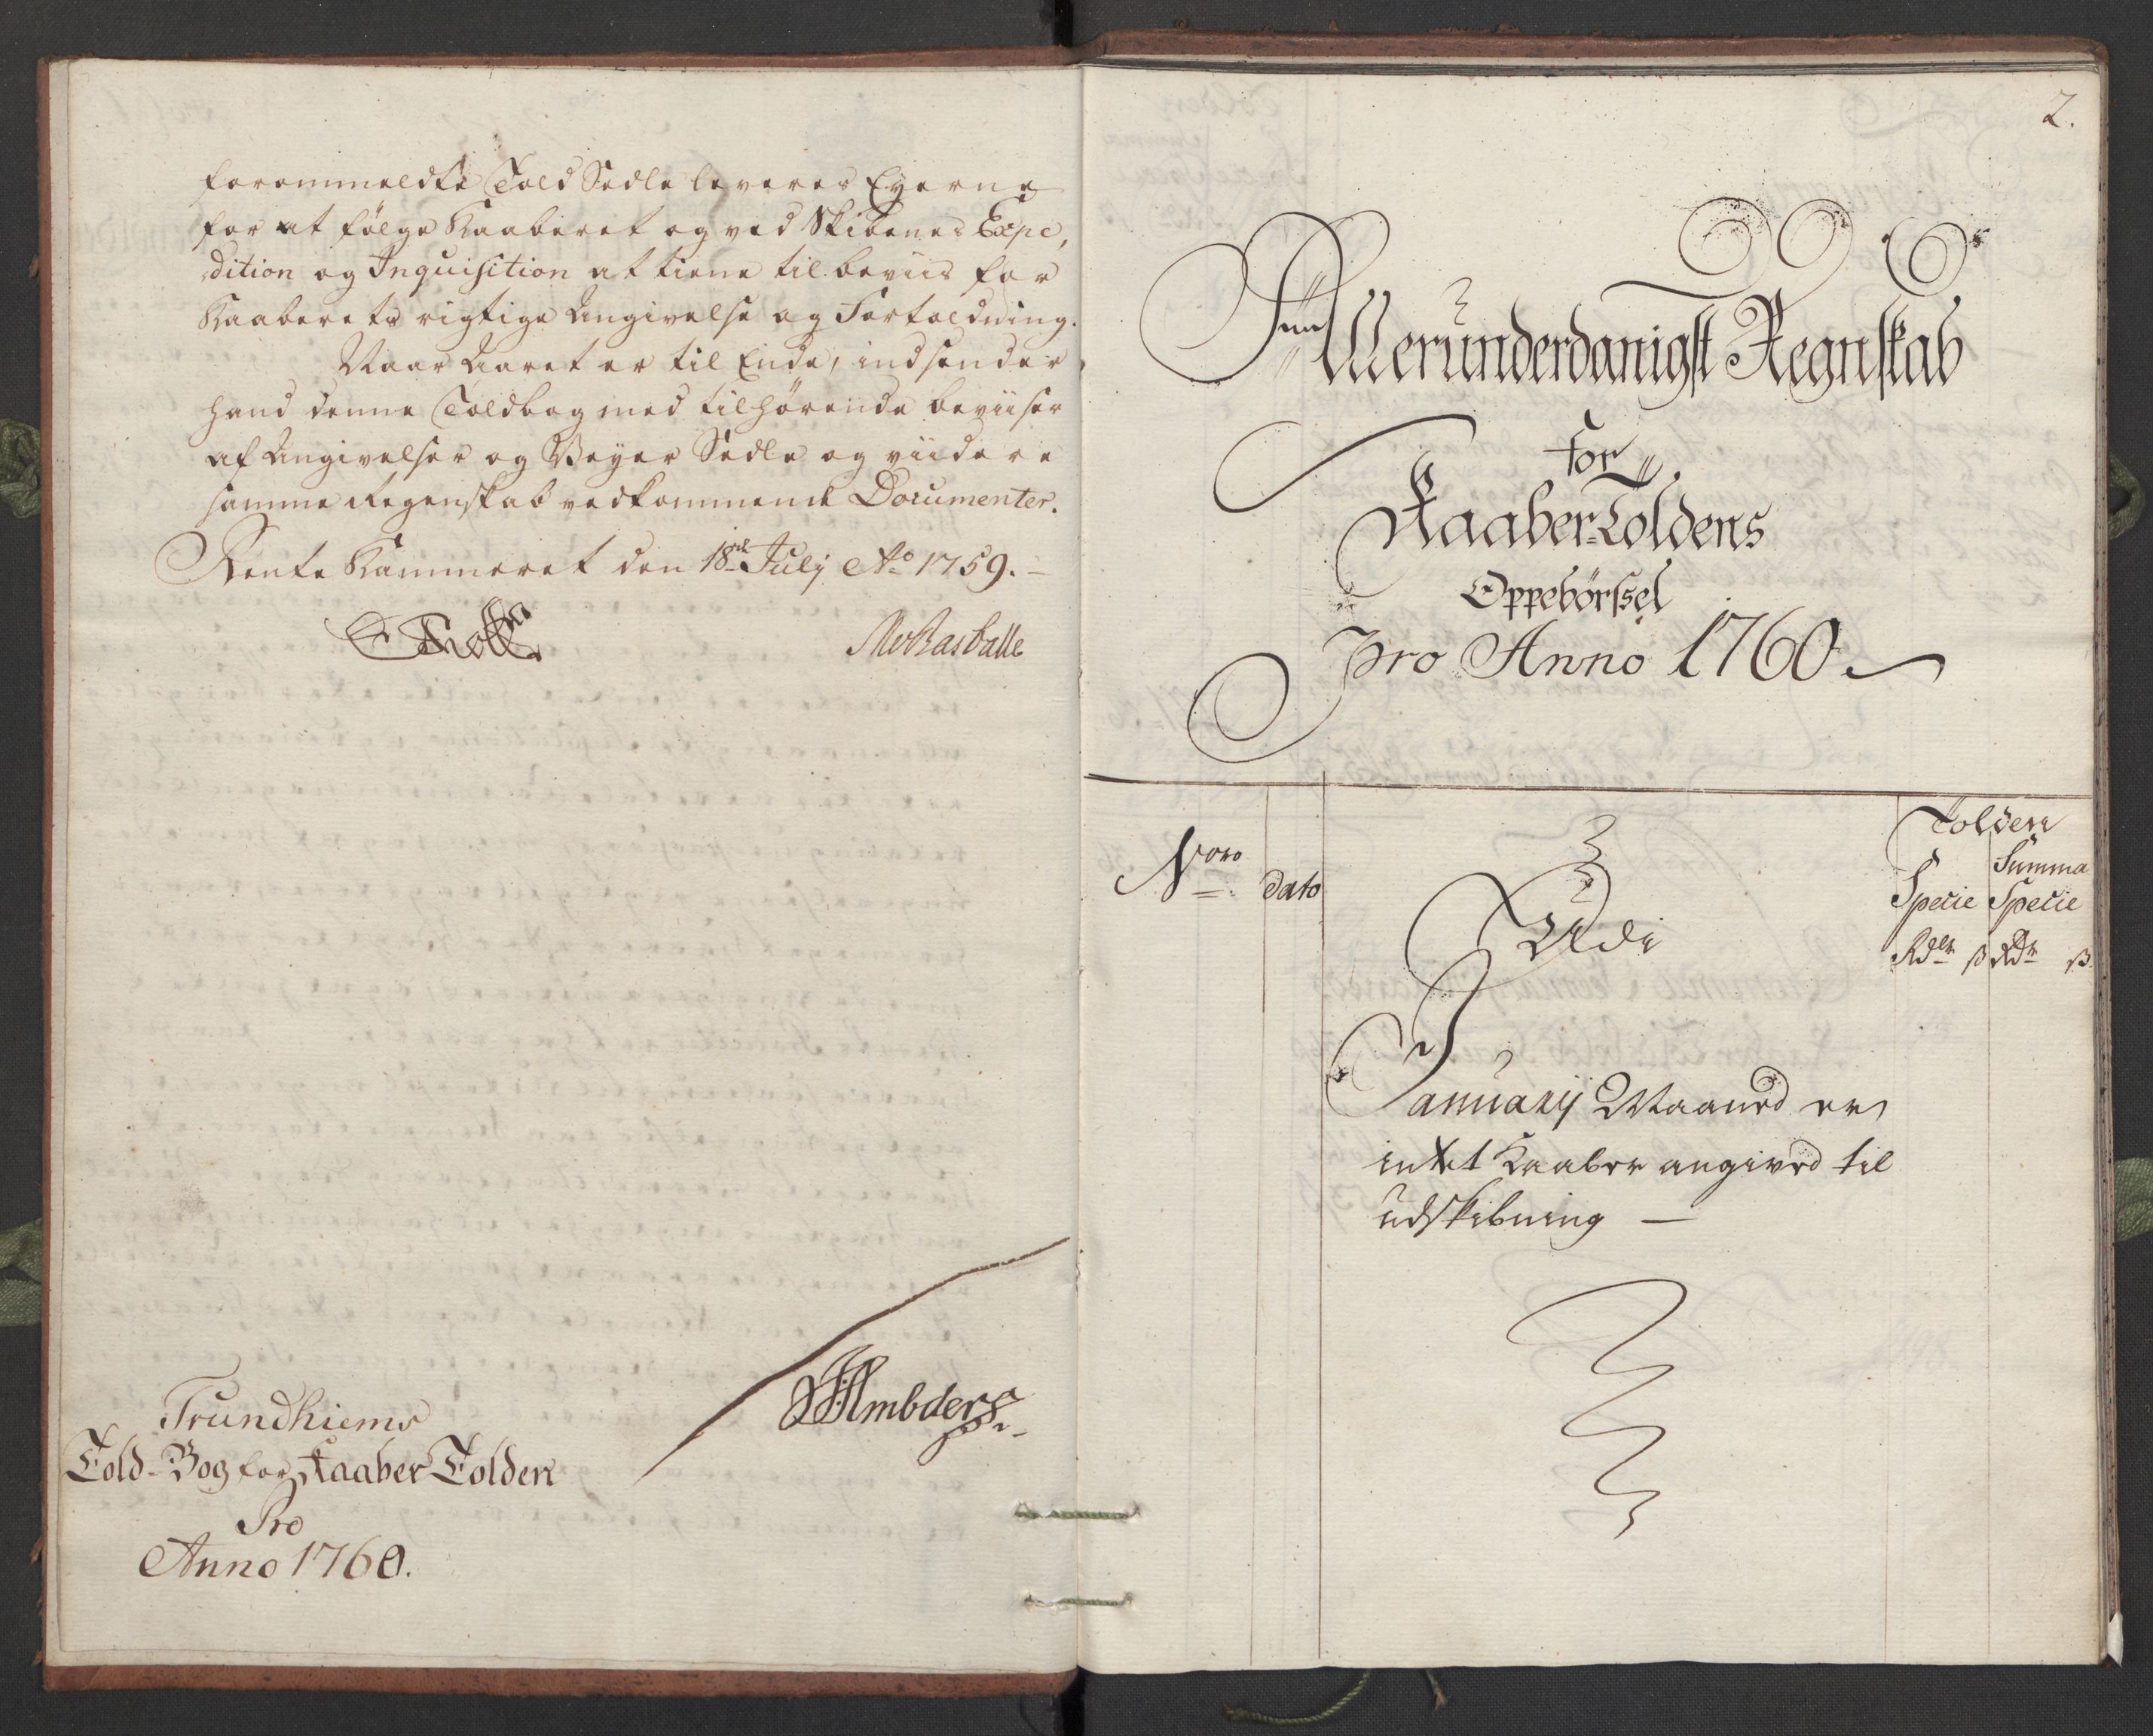 forommeldte Told Sedle leveres Eyerne
for at følge Kaaberet og ved Skibenes Expe,
dition og Inquisition at tiene til beviis for
Kaaberets rigtige Angivelse og Fortoldning.
Naar Aaret er til Ende, indsender
hand denne Toldbog med tilhørende beviiser
af Angivelser og Veyer Sedle og viidere
samme Regenskab vedkommende Documenter.
Rente Kammeret den 18de July Ao 1759.
Trundhiems
Told-Bog for Kaaber Tolden
Pro
Anno 1760.
2.
Allerunderdanigst Regnskab
for
Kaaber-Toldens
Oppebørssel
Pro Anno 1760
Nro
dato
Tolden
Summa
Specie Specie
Rdlr ß Rdr ß
Udi
Januarij Maaned er
intet Kaaber angived til
udskibning —